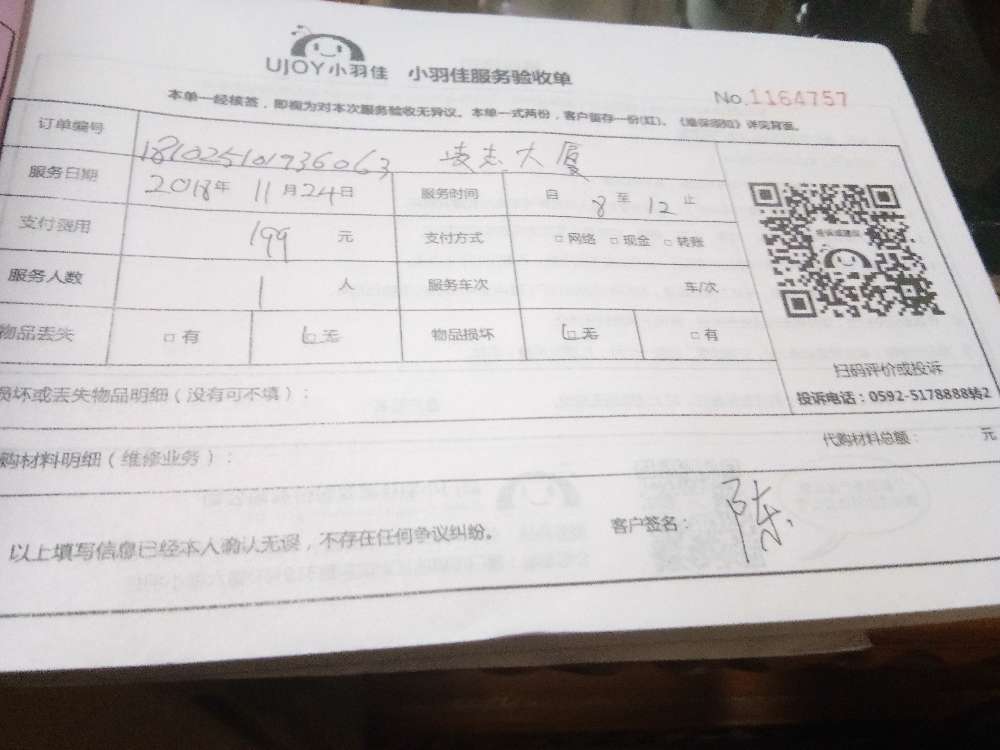 UJOY小羽佳 小羽佳服务验收单
No.1164757
本单一经核签，即视为对本次服务验收无异议。本单一式两份，客户留存一份(红)、《维保须知》详见背面。
订单编号 181025101736063 凌志大厦
服务日期 2018年 11月24日 服务时间 自 8 至 12 止
支付费用 199 元 支付方式 □网络 □现金 □转账
服务人数 1 人 服务车次 车/次
物品丢失 □有 □无 物品损坏 □无 □有
扫码评价或投诉
投诉电话：0592-5178888转2
损坏或丢失物品明细（没有可不填）：
购材料明细（维修业务）： 代购材料总额： 元
以上填写信息已经本人确认无误，不存在任何争议纠纷。 客户签名： 陈